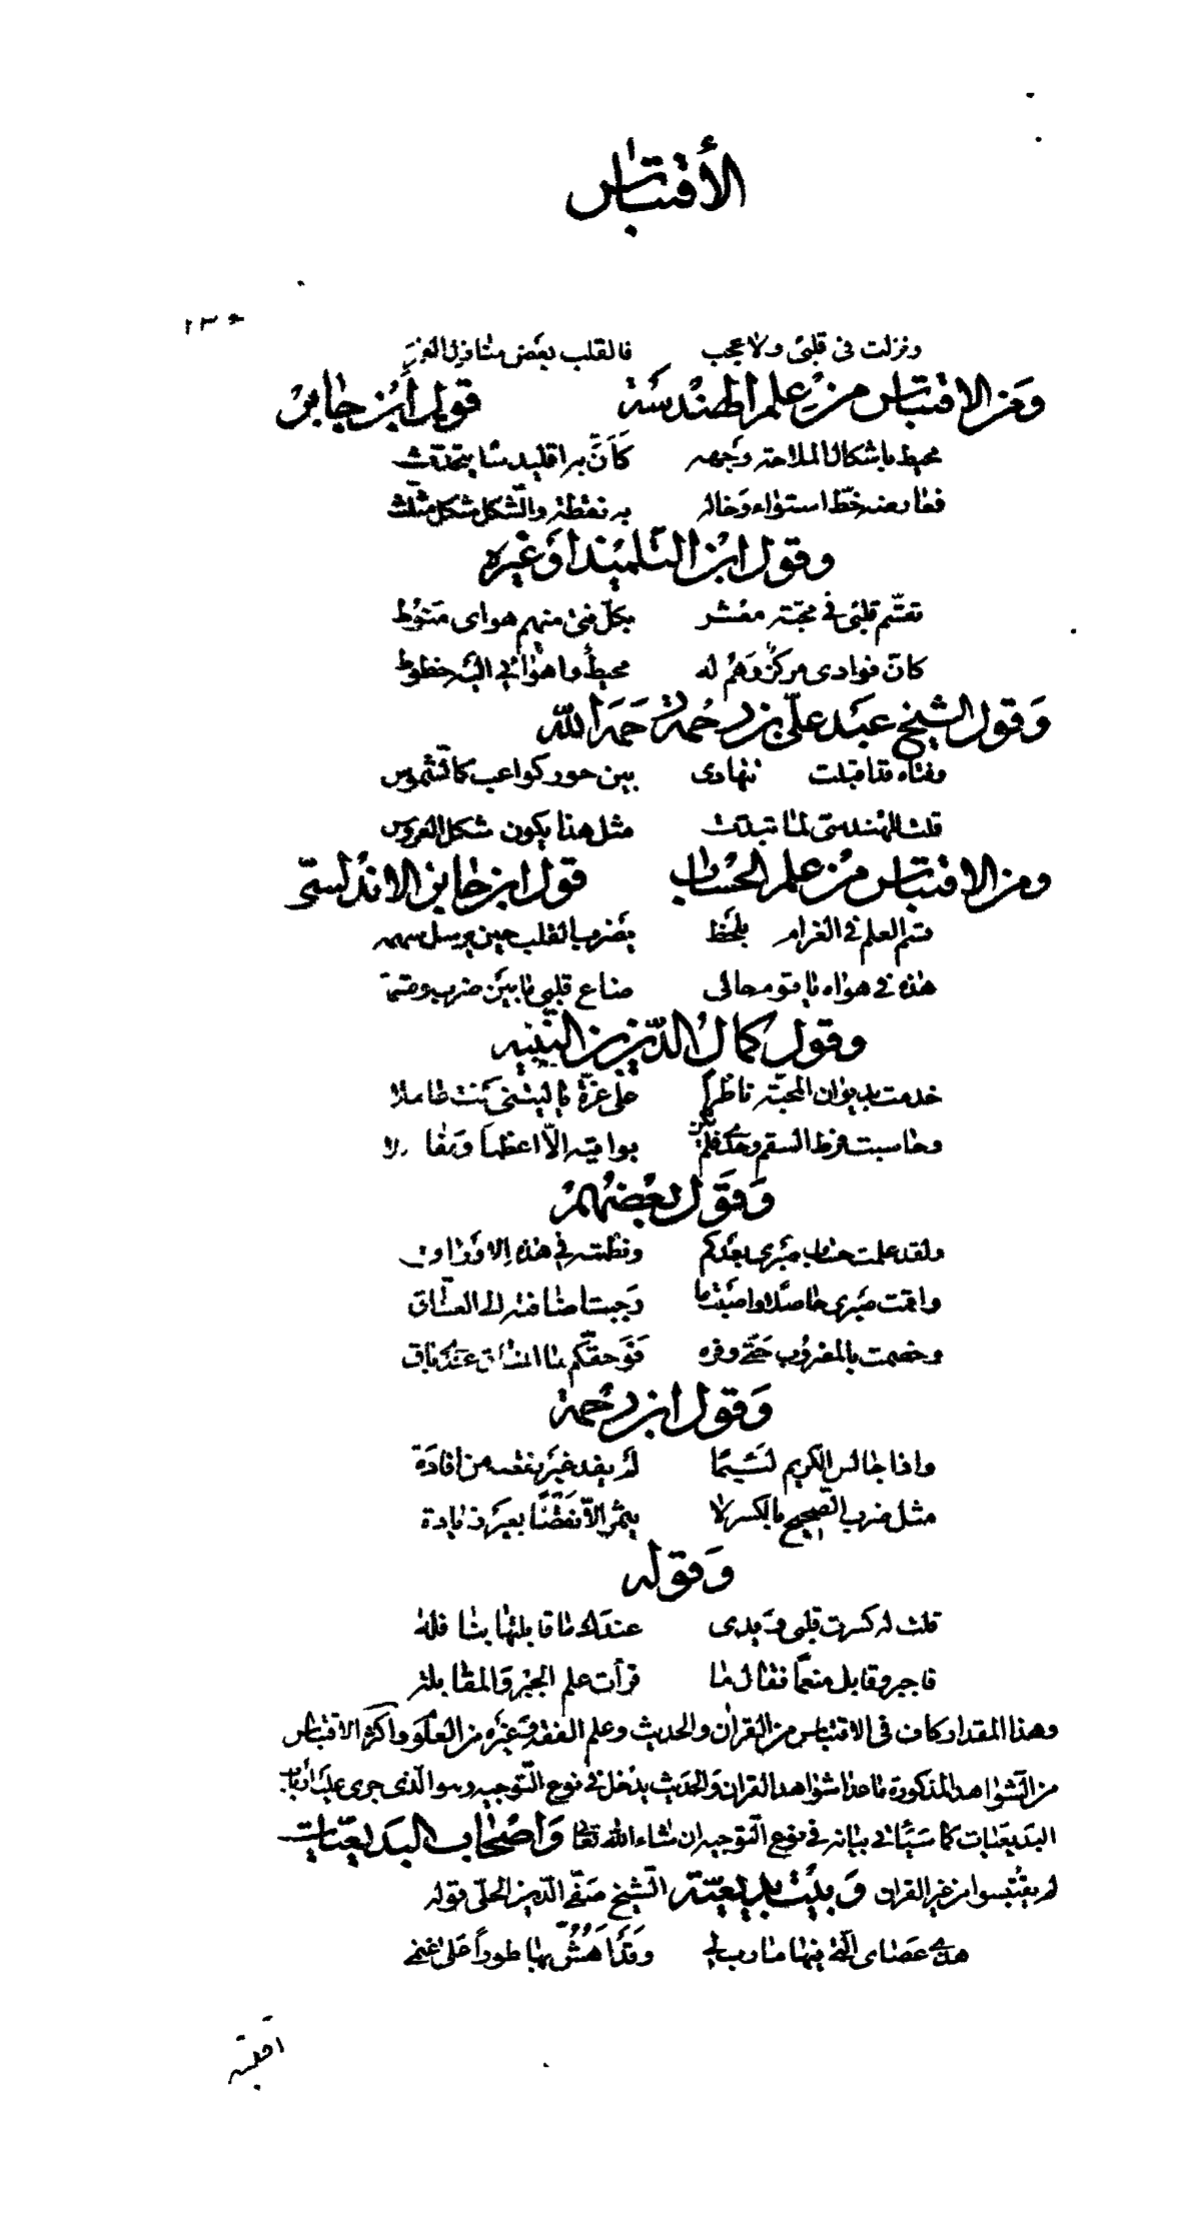 الأقتباس
١٣٤
ونزلت فى قلبى ولا عجب فالقلب بعض منازل القمر
ومن الاقتباس من علم الهندسة قول ابن جابر
محيط باشكال الملاحة وجهه كأنّ به اقليدسا يتحدّث
فعارضه خطّ استواء وخاله به نقطة والشّكل شكل مثلّث
وقول ابن التلميذ او غيره
تقسّم قلبى فى محبّة معشر بكلّ فتى منهم هواى منوط
كانّ فوادى مركز وهم له محيط واهوائى اليه خطوط
وقول الشيخ عبد علىّ بن رحمة رحمه الله
وفتاة قد اقبلت تتهادى بين حور كواعب كالشّموس
قلت للهندسىّ لمّا تبدّت مثل هذا يكون شكل العروس
ومن الاقتباس من علم الحساب قول ابن جابر الاندلسىّ
قسم العلم فى الغرام بلحظ يضرب القلب حين يرسل سهمه
هذه فى هواه يا قوم حالى ضاع قلبى ما بين ضرب وقسمة
وقول كمال الدّين بن النّبيه
خدمت بديوان المحبّة ناظراً على غرّة يا ليتنى كنت عاملا
وحاسبت فرط السقم وحدى فلم يكن بواقيه الاّ اعظماً ومفاصلا
وقول بعضهم
ولقد علمت حساب صبرى بعدكم ونظمته فى هذه الاوراق
واقمت صبرى حاصلا واضفت ما وجبت اضافته الى العشّاق
وخصمت بالمضروب حتّى وفره فوحقّكم ما انساق عندى باق
وقول ابن رحمة
واذا جالس الكريم لئيما لم يفد غير نقصه من افادة
مثل ضرب الصّحيح بالكسر لا يثمر الاّ نقصًا بغير زيادة
وقوله
قلت له كسرت قلبى ويدى عندك ما قابلتها بنافله
فاجبر وقابل منعمًا فقال ما قرأت علم الجبر والمقابلة
وهذا المقدار كاف فى الاقتباس من القران والحديث وعلم الفقه وغيره من العلوم واكثر الاقتباس
من الشّواهد المذكورة ما عدا شواهد القران والحديث يدخل فى نوع التّوجيه وهو الّذى جرى عليه ارباب
البديعيّات كما سيأتى بيانه فى نوع التّوجيه ان شاء الله تعالى وأصحاب البديعيّات
لم يقتبسوا من غير القران وبيت بديعيّة الشّيخ صفىّ الدّين الحلّى قوله
هذى عصاى الّتى فيها مأرب لى وقد أهشّ بها طوراً على غنمى